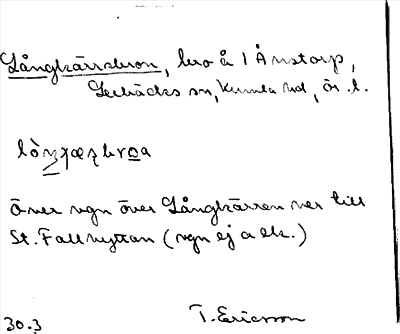 Långkärrsbron, bro å 1 Ånstorp,
Lerbäcks sn, Kumla hd, ör. l.
Över vgn över Långkärren ner till
St. Fallhyttan (vgn ej a ek.)
30.3 T. Ericsson